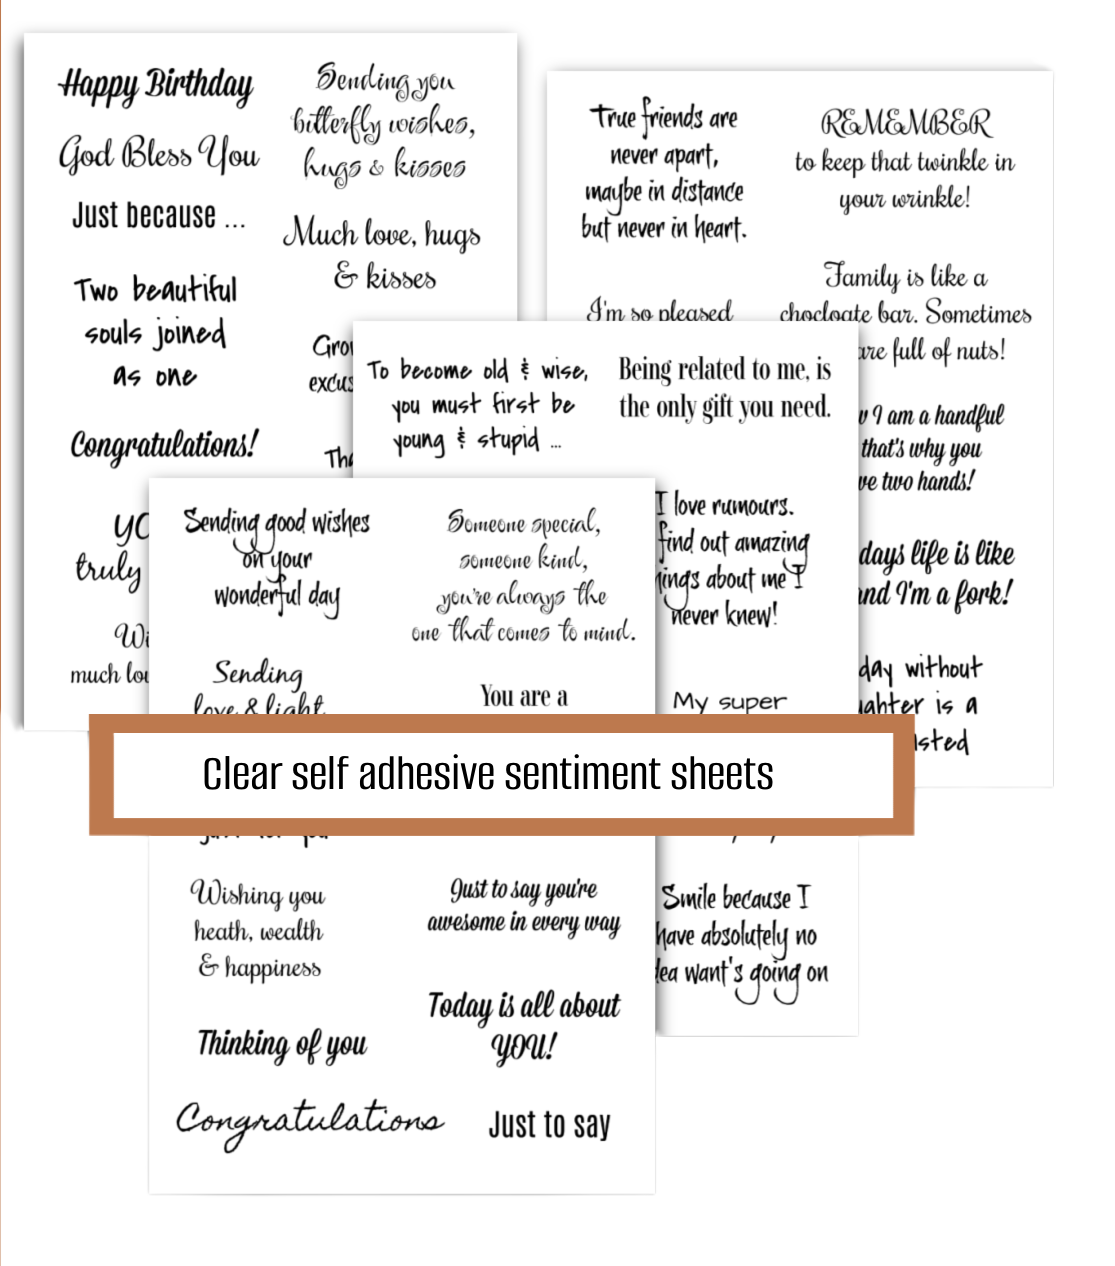 Happy Birthday
God Bless You
Just because ...
Two beautiful
souls joined
as one
Congratulations!
truly
much
Sending you
bitterfly wishes,
hugs & kisses
Much love, hugs
& kisses
True friends are
never apart,
maybe in distance
but never in heart.
I'm so pleased
REMEMBER
to keep that twinkle in
your wrinkle!
Family is like a
chocloate bar. Sometimes
are full of nuts!
I am a handful
that's why you
two hands!
days life is like
and I'm a fork!
day without
is a
To become old & wise,
you must first be
young & stupid ...
Being related to me, is
the only gift you need.
I love rumours.
find out amazing
about me I
never knew!
My super
Smile because I
have absolutely no
want's going on
Sending good wishes
on your
wonderful day
Sending
love & light
Someone special,
someone kind,
you're always the
one that comes to mind.
You are a
Clear self adhesive sentiment sheets
Wishing you
heath, wealth
& happiness
Thinking of you
Congratulations
Just to say you're
awesome in every way
Today is all about
YOU!
Just to say